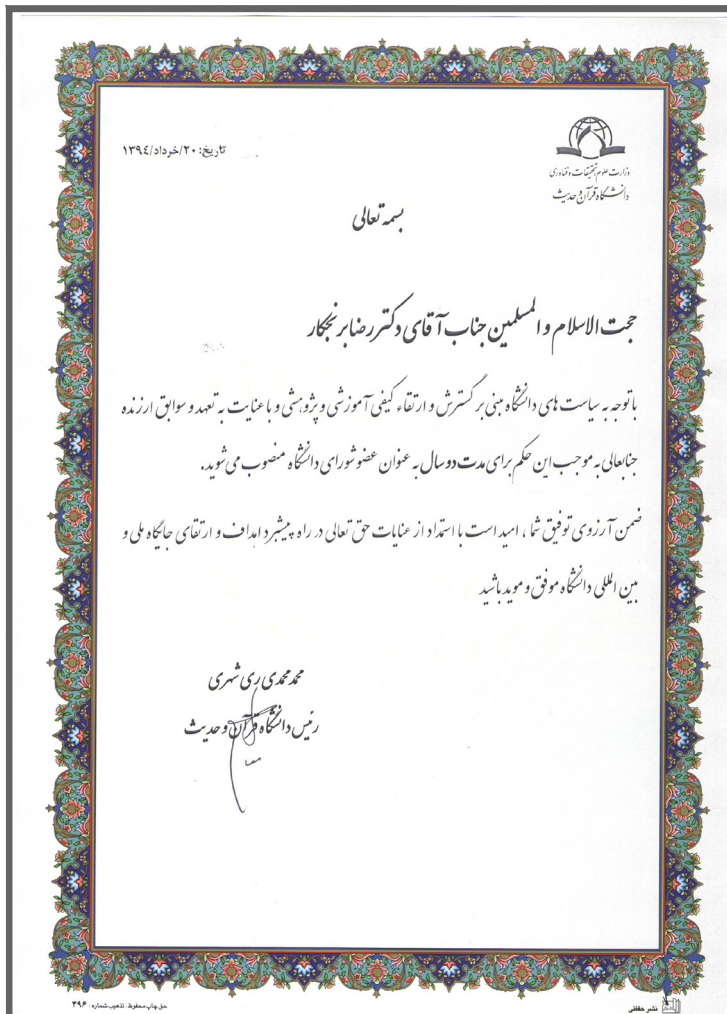 تاریخ: ۲۰/خرداد/۱۳۹٤
وزارت علوم تحقیقات و فناوری
دانشگاه قرآن و حدیث
بسمه تعالی
حجت الاسلام و المسلمین جناب آقای دکتر رضا برنجکار
باتوجه به سیاست های دانشگاه مبنی بر گسترش و ارتقاء کیفی آموزشی و پژوهشی و با عنایت به تعهد و سوابق ارزنده
جنابعالی به موجب این حکم برای مدت دو سال به عنوان عضو شورای دانشگاه منصوب می شوید.
ضمن آرزوی توفیق شما، امید است با استمداد از عنایات حق تعالی در راه پیشبرد اهداف و ارتقای جایگاه ملی و
بین المللی دانشگاه موفق و موید باشید
محمد محمدی ری شهری
رئیس دانشگاه قرآن و حدیث
نشر حفظی
حق چاپ محفوظ. تذهیب شماره: ۳۹۶